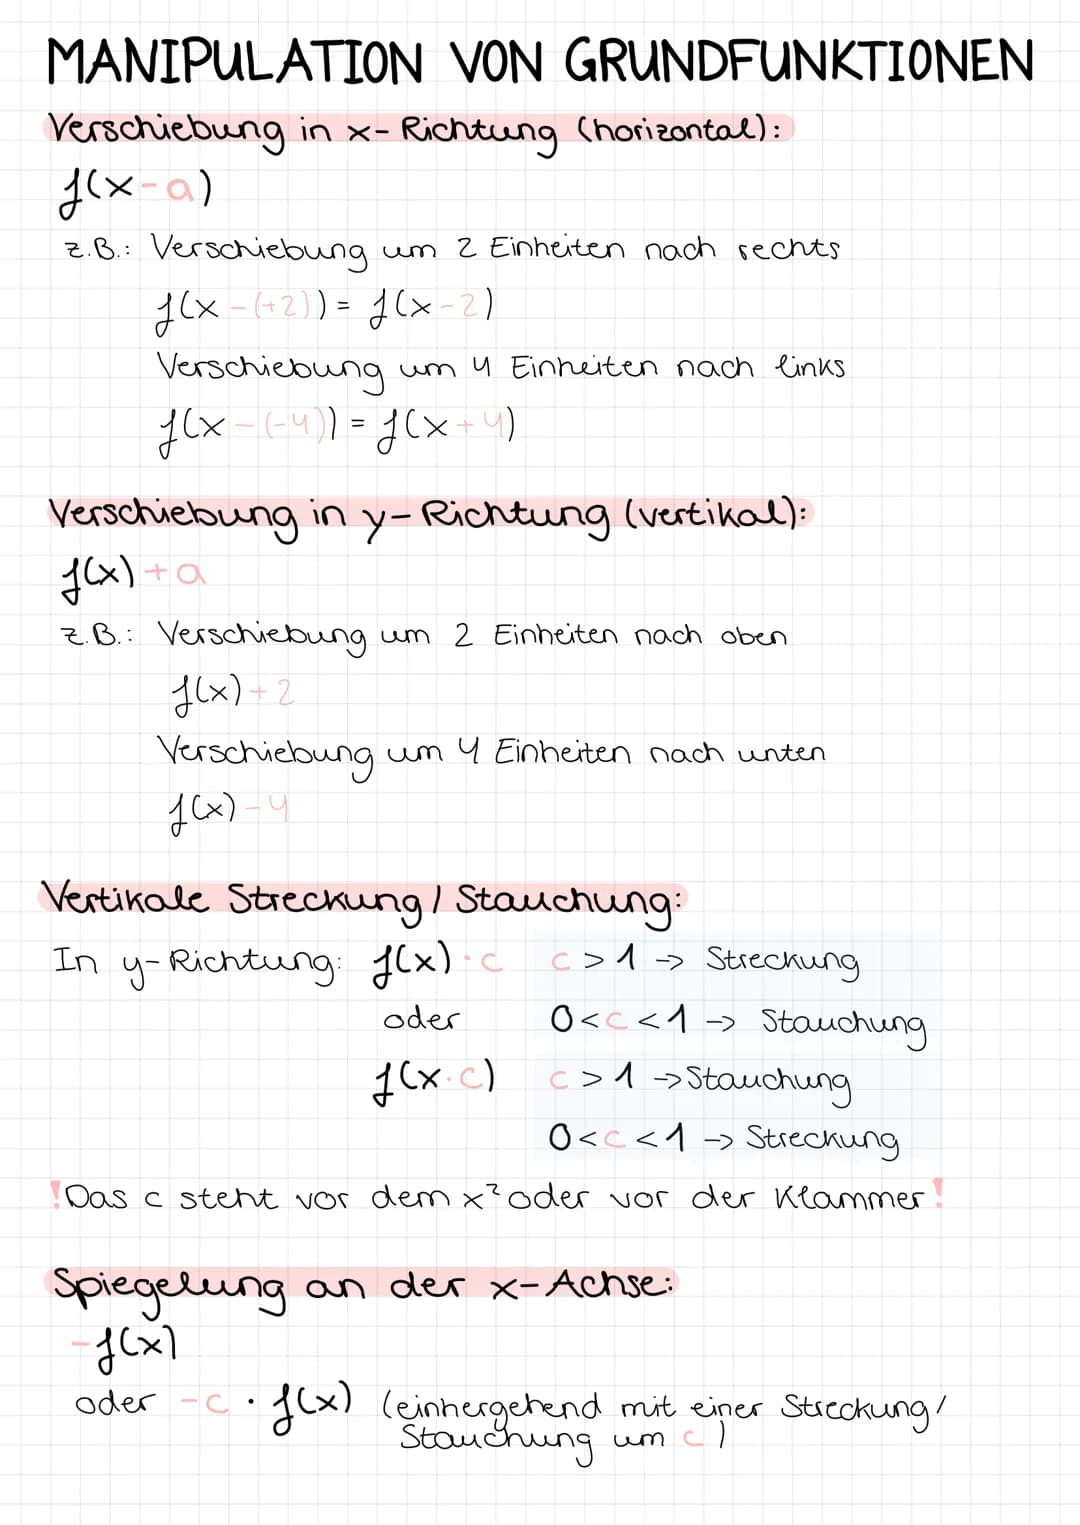 MANIPULATION VON GRUNDFUNKTIONEN
Verschiebung in x-Richtung (horizontal):
f(x-a)
z.B.: Verschiebung um 2 Einheiten nach rechts
f(x-(+2)) = f(x-2)
Verschiebung um 4 Einheiten nach links
f(x-(-4)) = f(x+4)
Verschiebung in y-Richtung (vertikal):
f(x)+a
z.B.: Verschiebung um 2 Einheiten nach oben
f(x)+2
Verschiebung um 4 Einheiten nach unten
f(x)-4
Vertikale Streckung/Stauchung:
In y-Richtung: f(x)·c c>1 -> Streckung
oder 0<c<1 -> Stauchung
f(x·c) c>1 -> Stauchung
0<c<1 -> Streckung
!Das c steht vor dem x² oder vor der Klammer!
Spiegelung an der x-Achse:
-f(x)
oder -c · f(x) (einhergehend mit einer Streckung/
Stauchung um c)